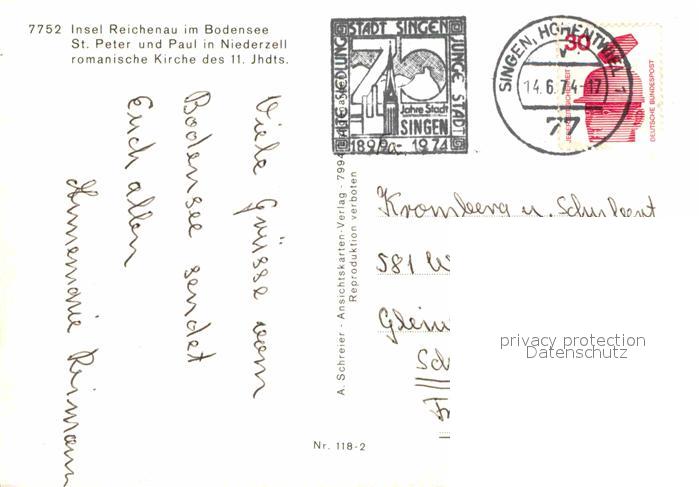 7752 Insel Reichenau im Bodensee
St. Peter und Paul in Niederzell
romanische Kirche des 11. Jhdts.
Viele Grüsse vom
Bodensee sendet
Euch allen
Annemarie Reimann
A. Schreier - Ansichtskarten-Verlag - 7994
Reproduktion verboten
Nr. 118-2
STADT SINGEN
ALTE SIEDLUNG
JUNGE STADT
75
Jahre Stadt
SINGEN
1899 - 1974
SINGEN, HOHENTWIEL 1
14.6.74-17
77
30
JEDERZEIT SICHERHEIT
DEUTSCHE BUNDESPOST
Kromberg u.
581 W
privacy protection
Datenschutz